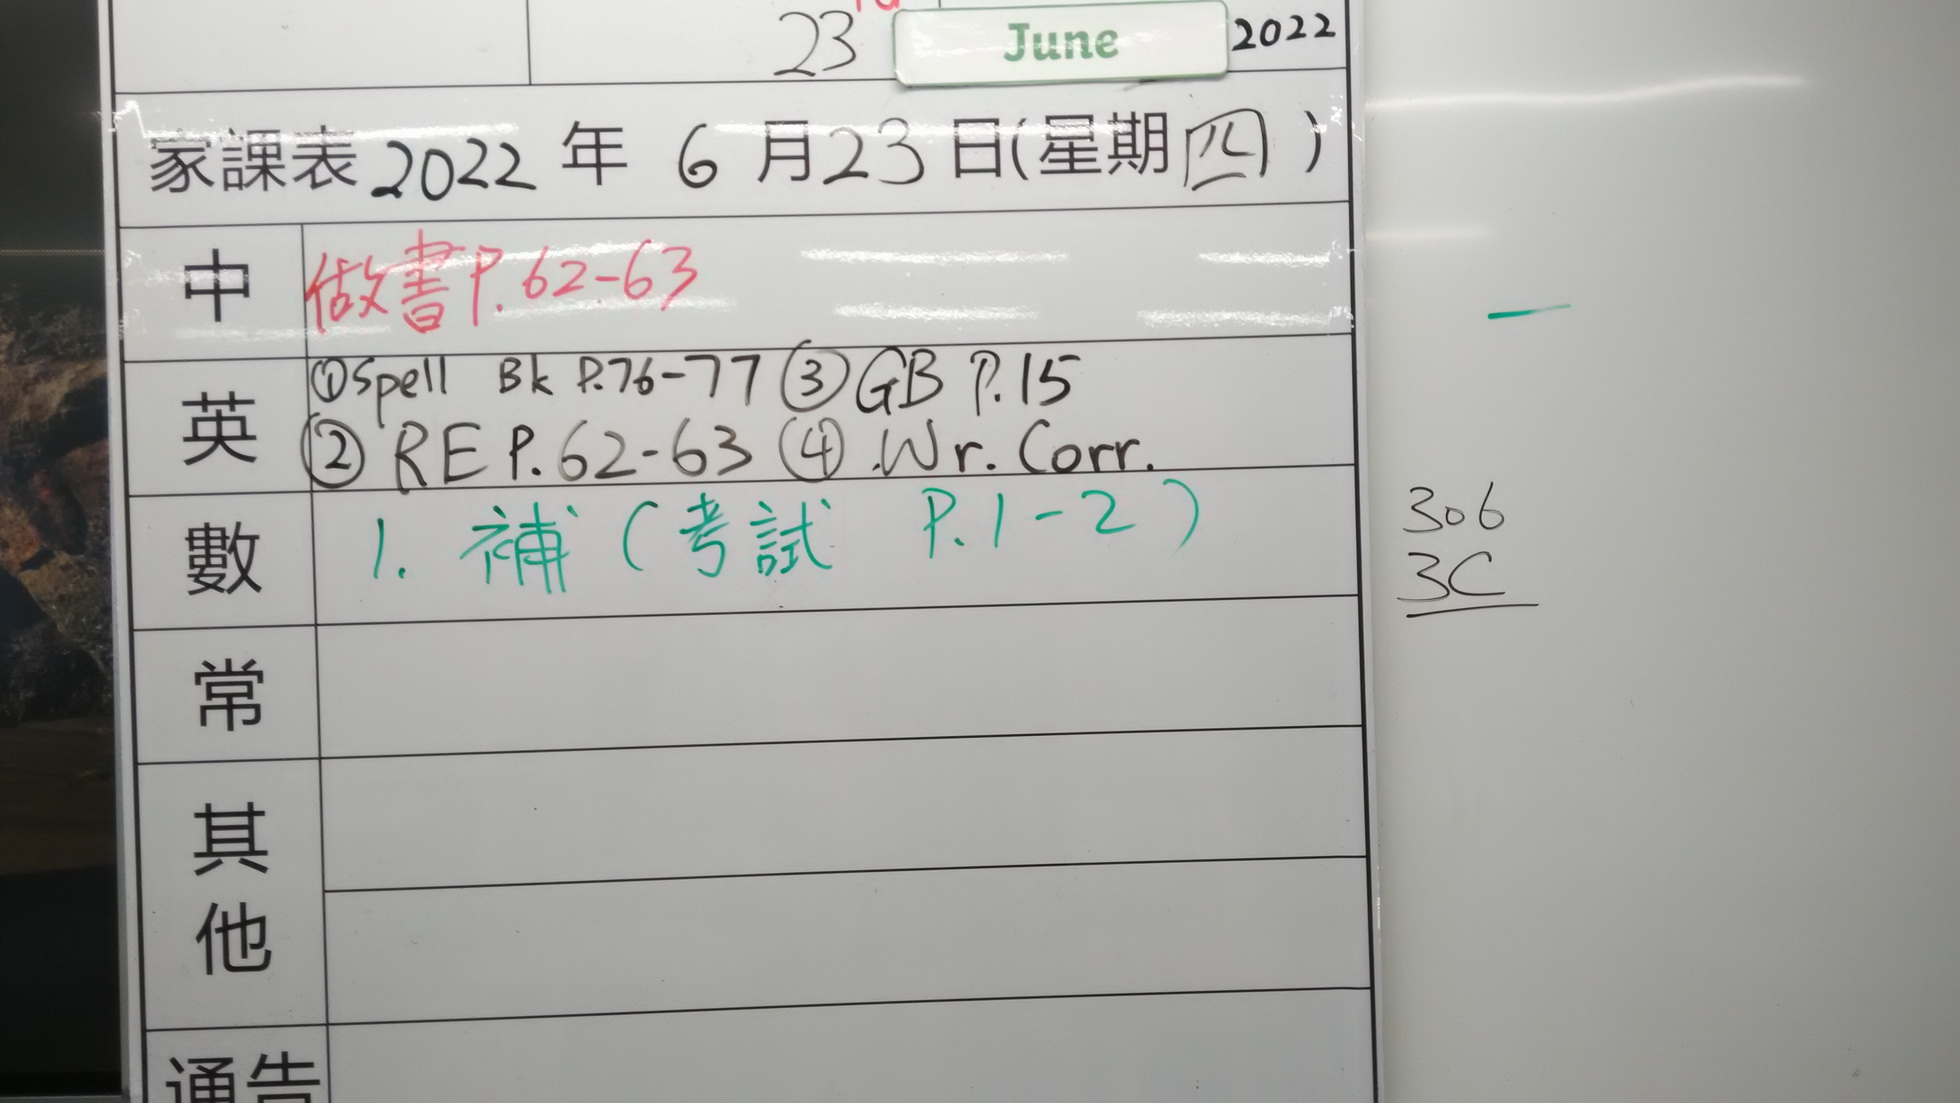 23 June 2022
家課表 2022 年 6 月 23 日(星期四)
中 做書 P.62-63
英 ①Spell Bk P.76-77 ③GB P.15
②RE P.62-63 ④Wr. Corr.
數 1. 補(考試 P.1-2)
常
其他
通告
306
3C